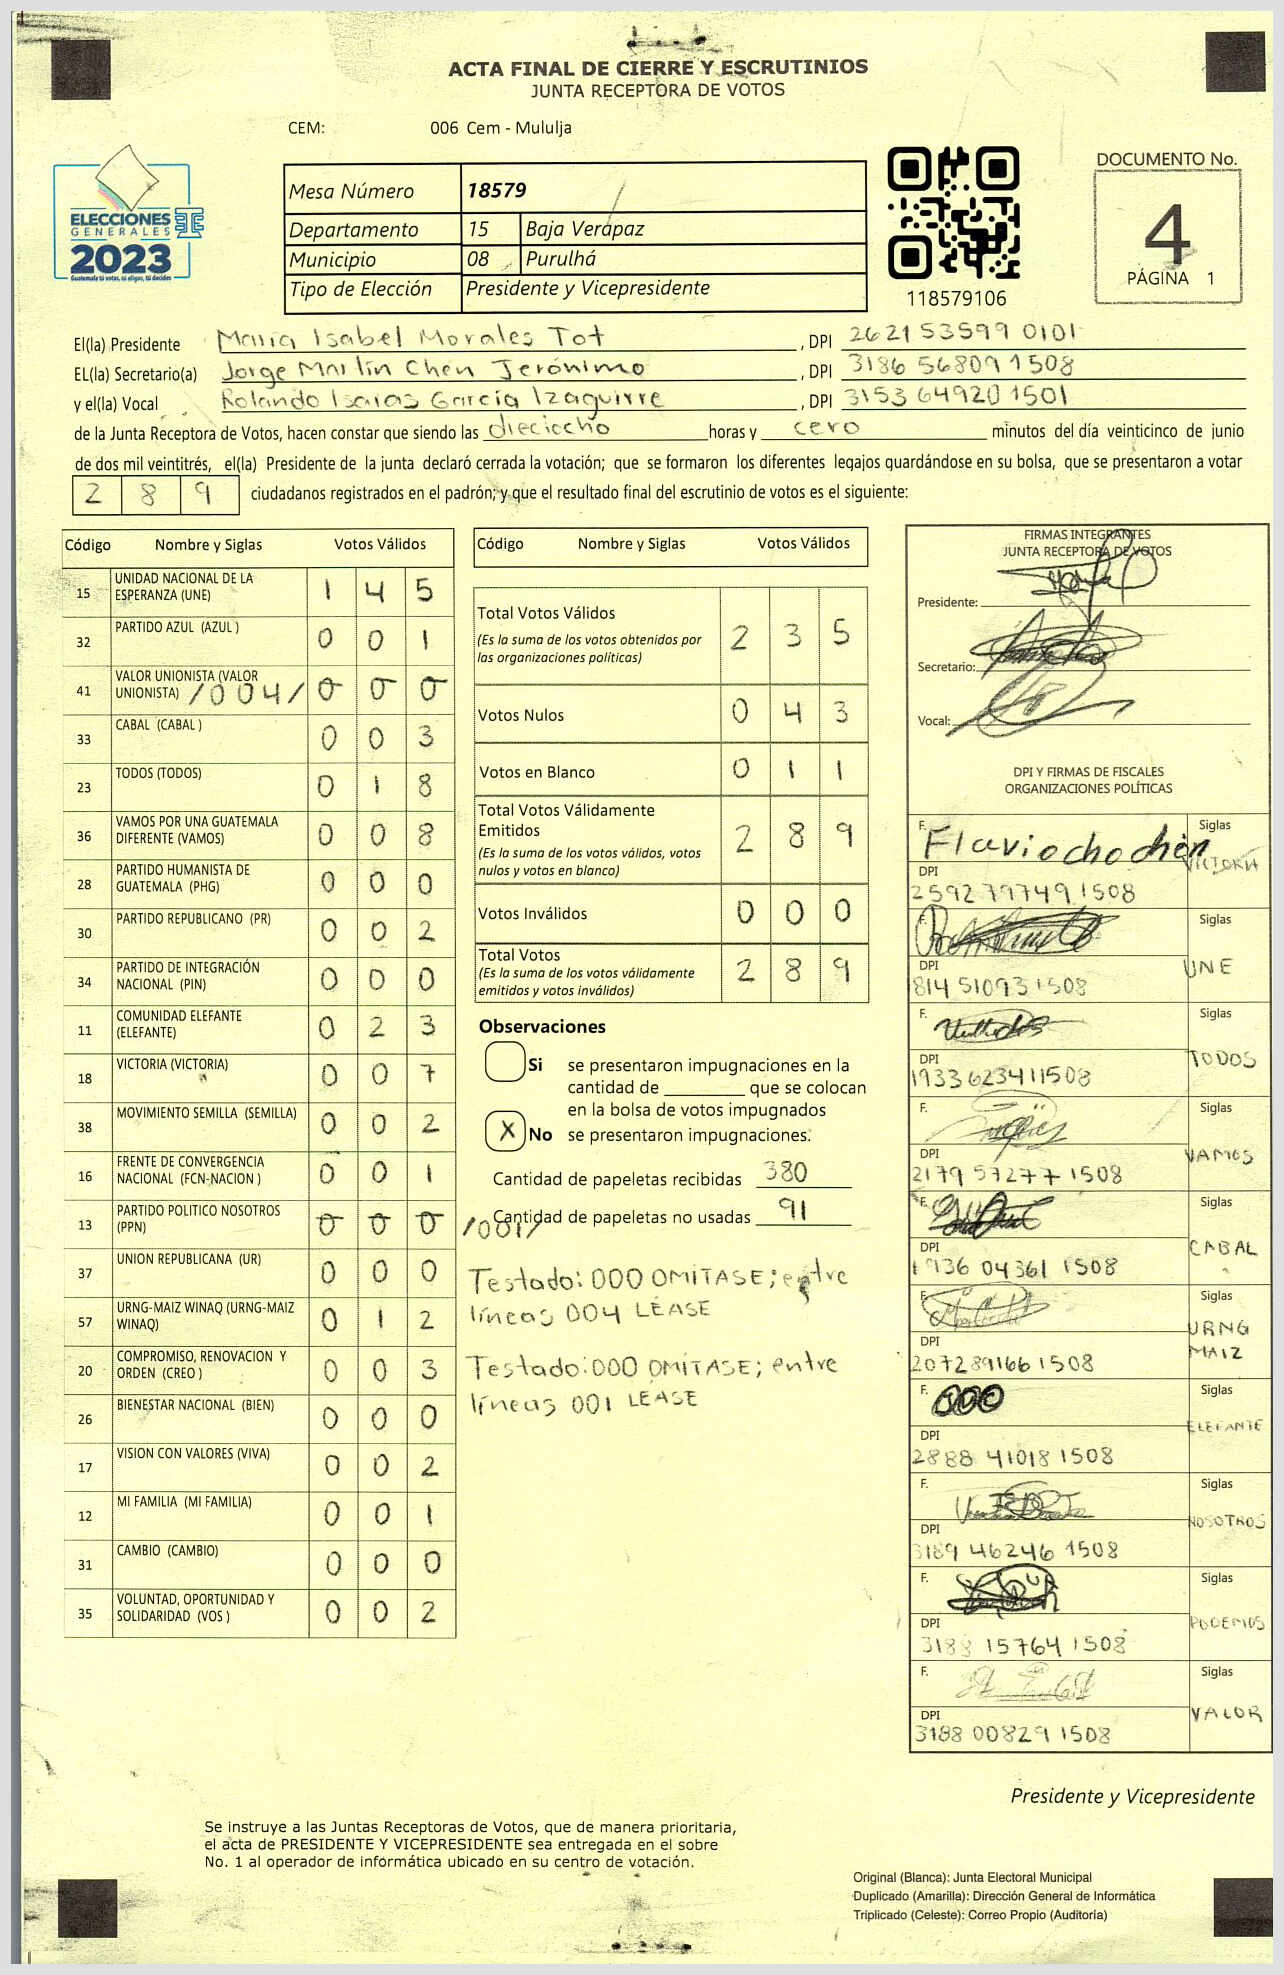 ACTA FINAL DE CIERRE Y ESCRUTINIOS
JUNTA RECEPTORA DE VOTOS
CEM: 006 Cem - Mululja
ELECCIONES
GENERALES
2023
Guatemala tú votas, tú eliges, tú decides
Mesa Número 18579
Departamento 15 Baja Verapaz
Municipio 08 Purulhá
Tipo de Elección Presidente y Vicepresidente
118579106
DOCUMENTO No.
4
PÁGINA 1
El(la) Presidente Maria Isabel Morales Tot , DPI 262153599 0101
EL(la) Secretario(a) Jorge Martín Chen Jerónimo , DPI 3186 56809 1508
y el(la) Vocal Rolando Isaias García Izaguirre , DPI 3153 64920 1501
de la Junta Receptora de Votos, hacen constar que siendo las dieciocho horas y cero minutos del día veinticinco de junio
de dos mil veintitrés, el(la) Presidente de la junta declaró cerrada la votación; que se formaron los diferentes legajos guardándose en su bolsa, que se presentaron a votar
2 8 9 ciudadanos registrados en el padrón; y que el resultado final del escrutinio de votos es el siguiente:
Código Nombre y Siglas Votos Válidos
15 UNIDAD NACIONAL DE LA ESPERANZA (UNE) 1 4 5
32 PARTIDO AZUL (AZUL ) 0 0 1
41 VALOR UNIONISTA (VALOR UNIONISTA) /004/ 0 0 0
33 CABAL (CABAL ) 0 0 3
23 TODOS (TODOS) 0 1 8
36 VAMOS POR UNA GUATEMALA DIFERENTE (VAMOS) 0 0 8
28 PARTIDO HUMANISTA DE GUATEMALA (PHG) 0 0 0
30 PARTIDO REPUBLICANO (PR) 0 0 2
34 PARTIDO DE INTEGRACIÓN NACIONAL (PIN) 0 0 0
11 COMUNIDAD ELEFANTE (ELEFANTE) 0 2 3
18 VICTORIA (VICTORIA) 0 0 7
38 MOVIMIENTO SEMILLA (SEMILLA) 0 0 2
16 FRENTE DE CONVERGENCIA NACIONAL (FCN-NACION ) 0 0 1
13 PARTIDO POLITICO NOSOTROS (PPN) 0 0 0 /001/
37 UNION REPUBLICANA (UR) 0 0 0
57 URNG-MAIZ WINAQ (URNG-MAIZ WINAQ) 0 1 2
20 COMPROMISO, RENOVACION Y ORDEN (CREO ) 0 0 3
26 BIENESTAR NACIONAL (BIEN) 0 0 0
17 VISION CON VALORES (VIVA) 0 0 2
12 MI FAMILIA (MI FAMILIA) 0 0 1
31 CAMBIO (CAMBIO) 0 0 0
35 VOLUNTAD, OPORTUNIDAD Y SOLIDARIDAD (VOS ) 0 0 2
Código Nombre y Siglas Votos Válidos
Total Votos Válidos 2 3 5
(Es la suma de los votos obtenidos por
las organizaciones políticas)
Votos Nulos 0 4 3
Votos en Blanco 0 1 1
Total Votos Válidamente
Emitidos 2 8 9
(Es la suma de los votos válidos, votos
nulos y votos en blanco)
Votos Inválidos 0 0 0
Total Votos 2 8 9
(Es la suma de los votos válidamente
emitidos y votos inválidos)
Observaciones
Si se presentaron impugnaciones en la
cantidad de ________ que se colocan
en la bolsa de votos impugnados
X No se presentaron impugnaciones.
Cantidad de papeletas recibidas 380
Cantidad de papeletas no usadas 91
Testado: 000 OMITASE; entre
líneas 004 LEASE
Testado: 000 OMITASE; entre
líneas 001 LEASE
FIRMAS INTEGRANTES
JUNTA RECEPTORA DE VOTOS
Presidente:
Secretario:
Vocal:
DPI Y FIRMAS DE FISCALES
ORGANIZACIONES POLÍTICAS
F. Flaviochochén Siglas VICTORIA
DPI 2592 79749 1508
F. Siglas UNE
DPI 1814 51093 1508
F. Siglas TODOS
DPI 1933 62341 1508
F. Siglas VAMOS
DPI 2179 57277 1508
F. Siglas CABAL
DPI 1936 04361 1508
F. Siglas URNG MAIZ
DPI 207289166 1508
F. Siglas ELEFANTE
DPI 2888 41018 1508
F. Siglas NOSOTROS
DPI 3189 46246 1508
F. Siglas PODEMOS
DPI 3188 15764 1508
F. Siglas VALOR
DPI 3188 00829 1508
Presidente y Vicepresidente
Se instruye a las Juntas Receptoras de Votos, que de manera prioritaria,
el acta de PRESIDENTE Y VICEPRESIDENTE sea entregada en el sobre
No. 1 al operador de informática ubicado en su centro de votación.
Original (Blanca): Junta Electoral Municipal
Duplicado (Amarilla): Dirección General de Informática
Triplicado (Celeste): Correo Propio (Auditoría)